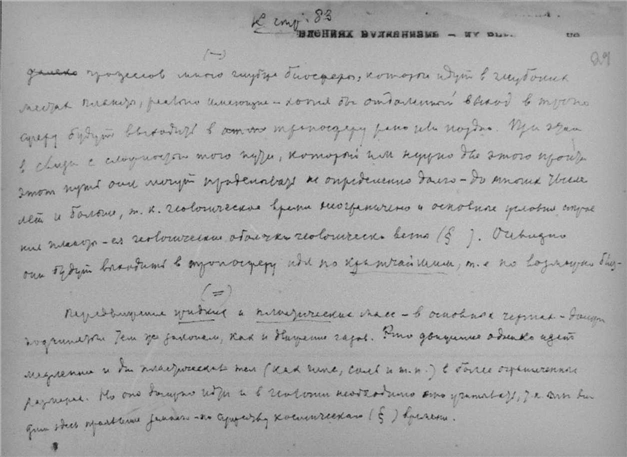 К стр. 83
влениях вулканизма – их
(—)
процессов много глубже биосферы, которые идут в глубоких
местах планеты, реально имеющие – хотя бы отдаленный выход в
сферу будут выходить в тропосферу рано или поздно. При этом
в связи с сложностью того пути, который им нужно для этого
этот путь они могут проделывать неопределенно долго – до многих
лет и больше, т. к. геологическое время неограничено и основные условия
ние планеты – ея геологические оболочки геологически вечны (§ ). Очевидно
они будут выходить в тропосферу идя по кратчайшим, т. е. по возможно
(=)
Передвижения жидких и пластических масс – в основных чертах –
подчинены тем же законам, как и движение газов. Это движение однако идет
медленнее и для пластических тел (как соль и т. п.) в более ограниченных
размерах. Но оно должно идти и в геологии необходимо это учитывать,
дим здесь проявление – по существу космического (§ ) времени.